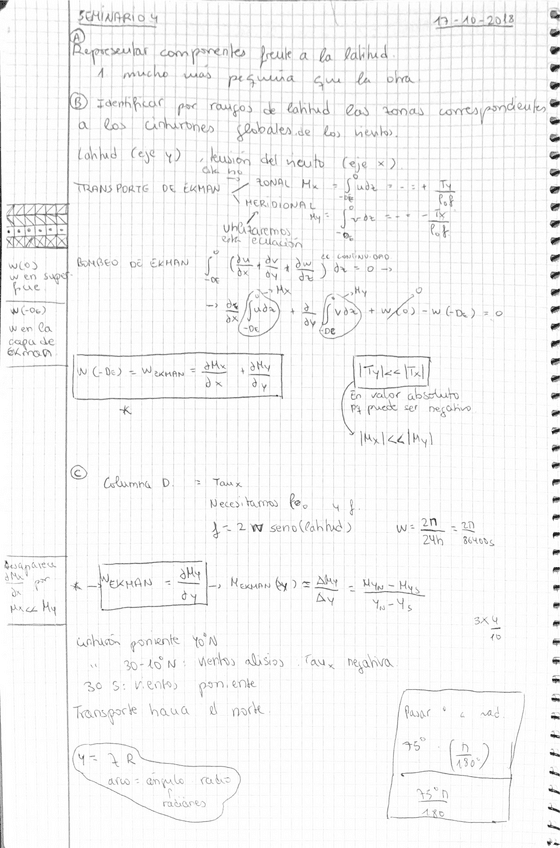 SEMINARIO 4 17-10-2018
Ⓐ
Representar componentes frente a la latitud.
1 mucho más pequeña que la otra
Ⓑ Identificar por rangos de latitud las zonas correspondientes
a los cinturones globales de los vientos.
Latitud (eje y), tensión del viento (eje x)
TRANSPORTE DE EKMAN ZONAL Mx = ∫_{-De}^{0} u dz = ... + Ty/ρ₀f
MERIDIONAL My = ∫_{-De}^{0} v dz = ... - Tx/ρ₀f
utilizaremos
esta ecuación
w(0)
w en super-
ficie
w(-De)
w en la
capa de
Ekman
BOMBEO DE EKMAN ∫_{-De}^{0} (∂u/∂x + ∂v/∂y + ∂w/∂z) dz = 0 →
EC CONTINUIDAD
→ ∂/∂x ∫_{-De}^{0} u dz + ∂/∂y ∫_{-De}^{0} v dz + w(0) - w(-De) = 0
Mx My
w(-De) = w EKMAN = ∂Mx/∂x + ∂My/∂y
*
|Ty| << |Tx|
En valor absoluto
pq puede ser negativo
|Mx| << |My|
Ⓒ
Columna D. = Taux
Necesitamos y f.
f = 2 w seno(latitud) w = 2π/24h = 2π/86400s
∂Mx/∂x por
Mx << My
* → w EKMAN = ∂My/∂y → M EKMAN (y) = ΔMy/Δy = (MyN - MyS)/(yN - yS)
3 x 4/10
cinturón poniente 40°N
" 30-10°N: vientos alisios. Taux negativa
30 S: vientos poniente
Transporte hacia el norte
arco = ángulo radio
radianes
Pasar ° a rad
75° · (π/180°)
75°π/180